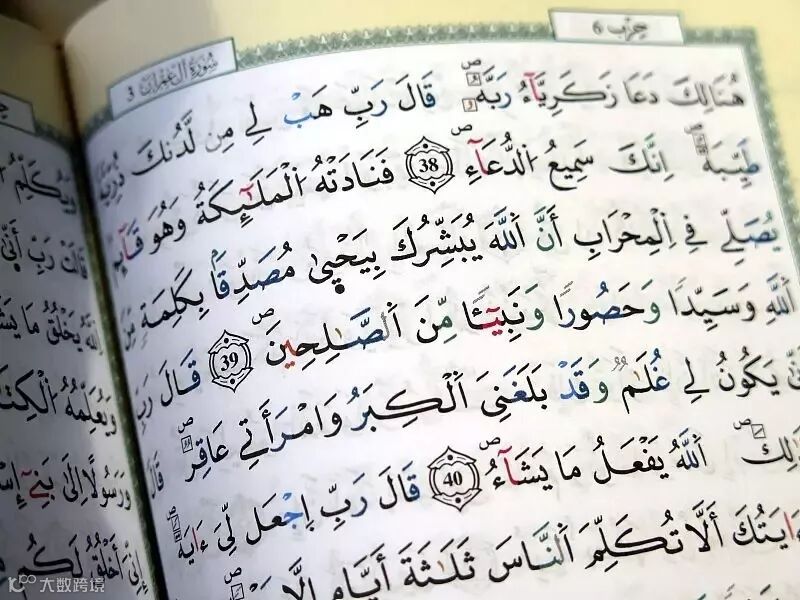 حِزْب 6
سُورَةُ آلِ عِمْرَانَ 3
هُنَالِكَ دَعَا زَكَرِيَّآءُ رَبَّهُۥ قَالَ رَبِّ هَبْ لِے مِن لَّدُنكَ ذُرِّيَّةٗ
طَيِّبَةً اِنَّكَ سَمِيعُ اُلدُّعَآءِ 38 فَنَادَتْهُ اُلْمَلَٰٓئِكَةُ وَهُوَ قَآئِمٞ
يُصَلِّے فِے اِلْمِحْرَابِ أَنَّ اَللَّهَ يُبَشِّرُكَ بِيَحْيٰى مُصَدِّقاَۢ بِكَلِمَةٖ مِّنَ
اَللَّهِ وَسَيِّداٗ وَحَصُوراٗ وَنَبِيٓـٔاٗ مِّنَ اَلصَّٰلِحِينَ 39 قَالَ رَبِّ
يَكُونُ لِے غُلَٰمٞ وَقَدْ بَلَغَنِيَ اَلْكِبَرُ وَامْرَأَتِے عَاقِرٞ قَالَ
اَللَّهُ يَفْعَلُ مَا يَشَآءُ 40 قَالَ رَبِّ اِجْعَل لِّيَ ءَايَةٗ
ءَايَتُكَ أَلَّا تُكَلِّمَ اَلنَّاسَ ثَلَٰثَةَ أَيَّامٍ اِلَّا
وَيُكَلِّمُ
قَالَتْ رَبِّ أَنّٰى
اَللَّهُ يَخْلُقُ مَا
وَيُعَلِّمُهُ اُلْكِتَ
وَرَسُولاً اِلَىٰ بَنِےٓ
إِنِّيَ أَخْلُقُ لَكُم
大数跨境